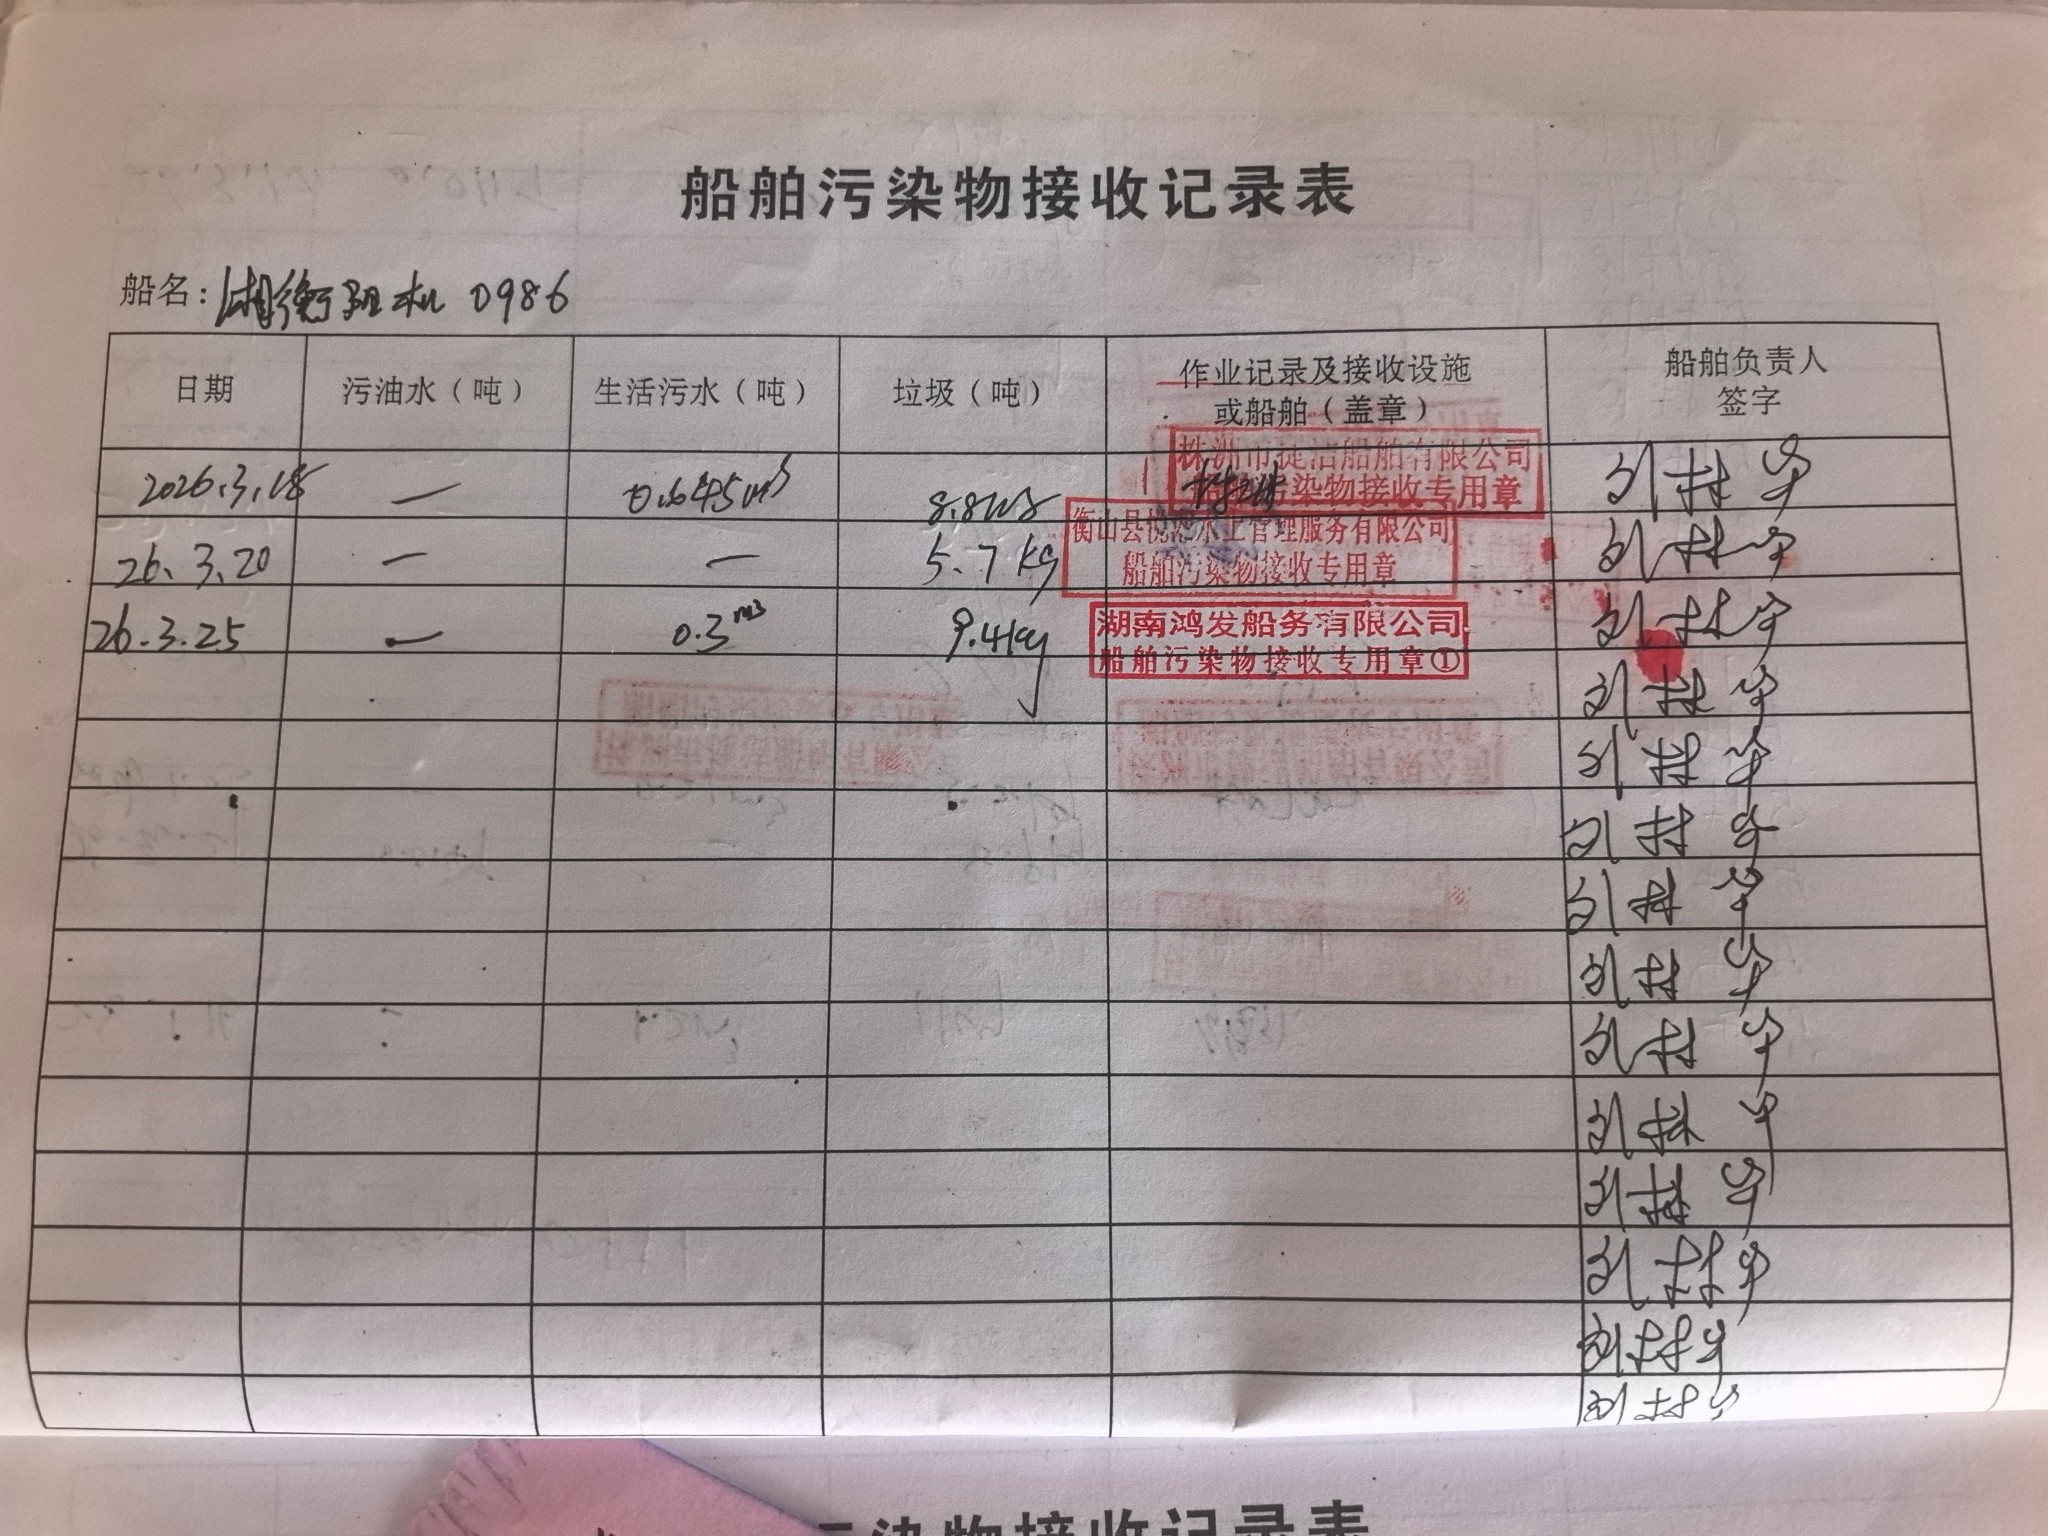 船舶污染物接收记录表
船名：湘衡阳机 0986
日期 污油水（吨） 生活污水（吨） 垃圾（吨） 作业记录及接收设施或船舶（盖章） 船舶负责人签字
2026.3.18 — 0.645m³ 8.8kg 株洲市捷洁船舶有限公司 船舶污染物接收专用章 刘林华
26.3.20 — — 5.7kg 衡山县悦 水上管理服务有限公司 船舶污染物接收专用章 刘林华
26.3.25 — 0.3m³ 9.4kg 湖南鸿发船务有限公司 船舶污染物接收专用章① 刘林华
刘林华
刘林华
刘林华
刘林华
刘林华
刘林华
刘林华
刘林华
刘林华
刘林华
刘林华
染物接收记录表